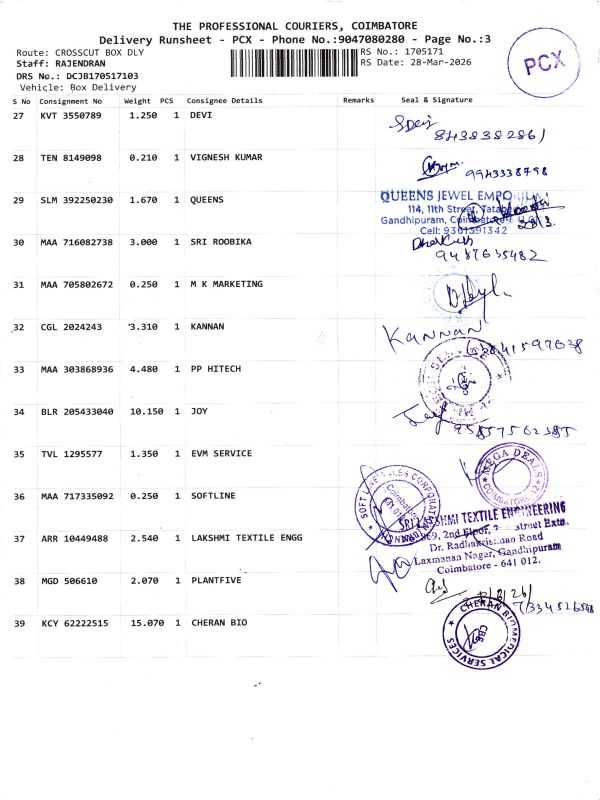 THE PROFESSIONAL COURIERS, COIMBATORE
Delivery Runsheet - PCX - Phone No.:9047080280 - Page No.:3
Route: CROSSCUT BOX DLY
RS No.: 1705171
Staff: RAJENDRAN
RS Date: 28-Mar-2026
DRS No.: DCJB170517103
Vehicle: Box Delivery
PCX
S No Consignment No Weight PCS Consignee Details Remarks Seal & Signature
27 KVT 3550789 1.250 1 DEVI
8438382861
28 TEN 8149098 0.210 1 VIGNESH KUMAR
9943338798
29 SLM 392250230 1.670 1 QUEENS
QUEENS JEWEL EMPO
114, 11th Street, Tatab
Gandhipuram, Coimbatore
Cell: 9361391342
30 MAA 716082738 3.000 1 SRI ROOBIKA
9487635482
31 MAA 705802672 0.250 1 M K MARKETING
32 CGL 2024243 3.310 1 KANNAN
KANNAN
33 MAA 303868936 4.480 1 PP HITECH
34 BLR 205433040 10.150 1 JOY
35 TVL 1295577 1.350 1 EVM SERVICE
MEGA DEALS
COIMBATORE-12
36 MAA 717335092 0.250 1 SOFTLINE
37 ARR 10449488 2.540 1 LAKSHMI TEXTILE ENGG
SRI LAKSHMI TEXTILE ENGINEERING
869, 2nd Floor, Street Extn.
Dr. Radhakrishnan Road
Laxmanan Nagar, Gandhipuram
Coimbatore - 641 012.
38 MGD 506610 2.070 1 PLANTFIVE
7334526548
39 KCY 62222515 15.070 1 CHERAN BIO
CHERAN BIOMEDICAL SERVICES
CBE